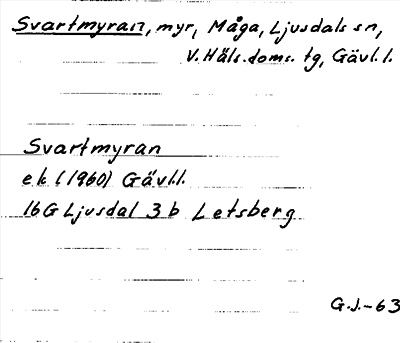 Svartmyran, myr, Måga, Ljusdals sn,
V. Häls. doms. tg, Gävl. l.
Svartmyran
ek (1960) Gävl.l.
16G Ljusdal 3 b Letsberg
G.J.-63